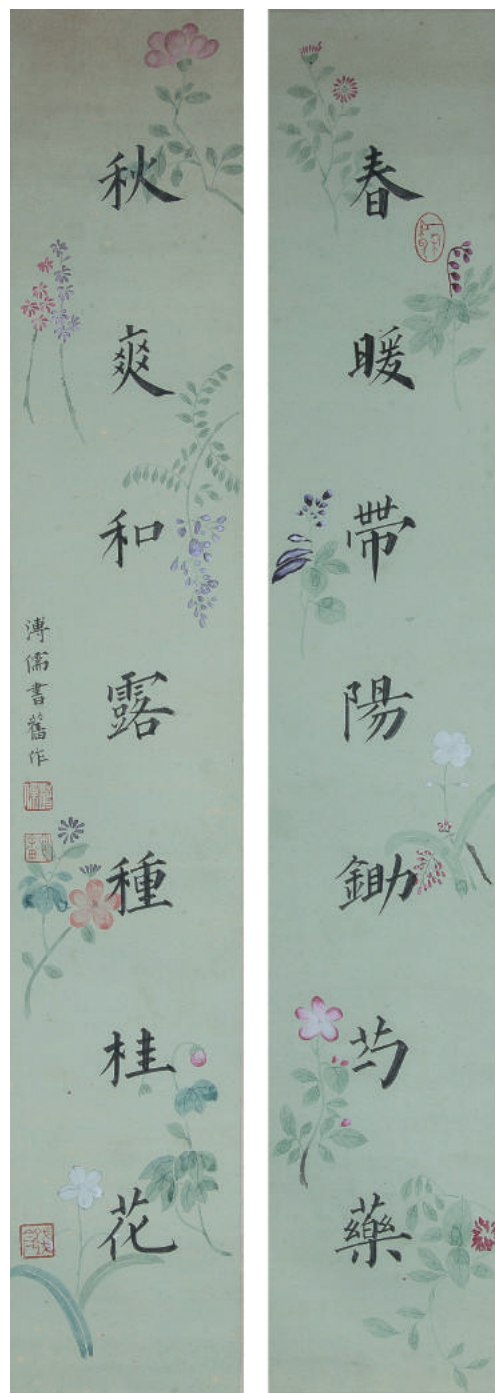 春暖帶陽鋤芍藥
秋爽和露種桂花
溥儒書舊作